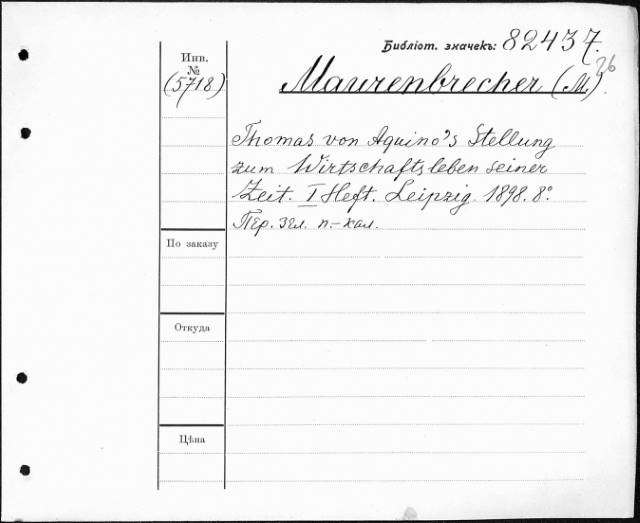 Библіот. значекъ: 82437.
26
Инв.
№
(5718)
Maurenbrecher (M.)
Thomas von Aquino's Stellung
zum Wirtschaftsleben seiner
Zeit. I Heft. Leipzig 1898. 8º.
Пер. зел. п.-кал.
По заказу
Откуда
Цѣна